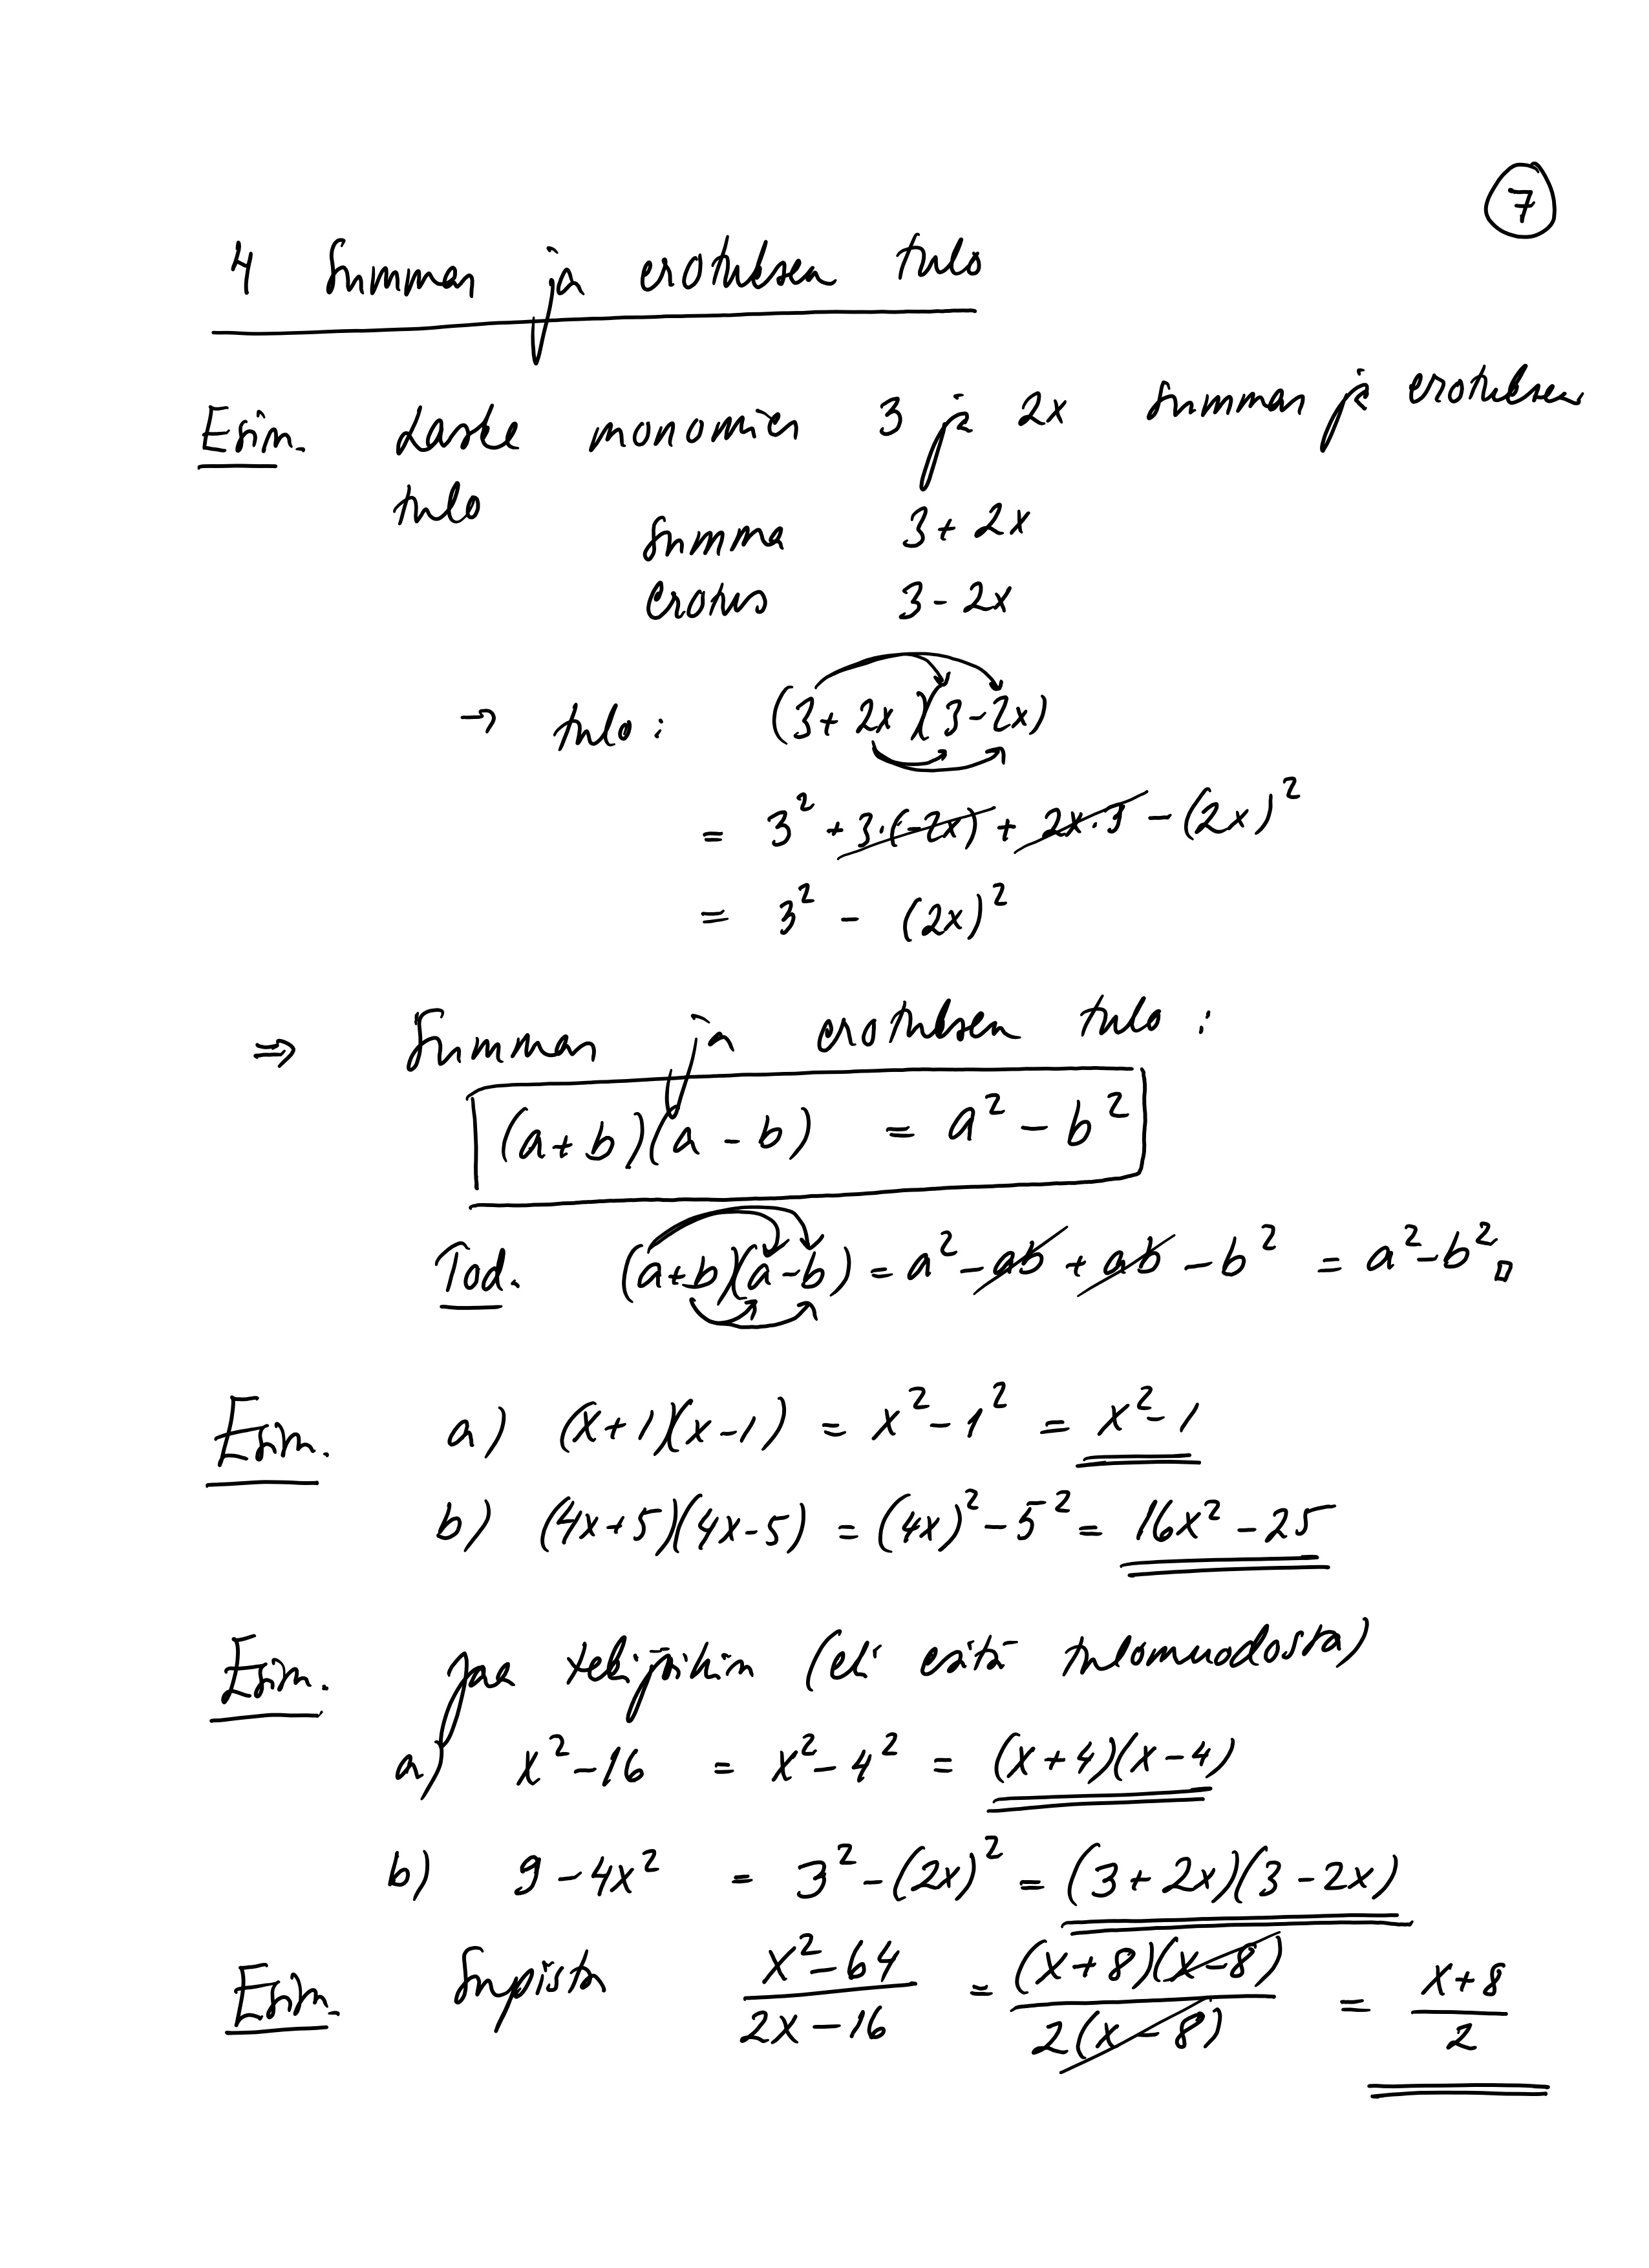 7
4 Summan ja erotuksen tulo
Esim. Laske monomien 3 ja 2x summan ja erotuksen
tulo
Summa 3 + 2x
Erotus 3 - 2x
→ tulo: (3 + 2x)(3 - 2x)
= 3² + 3·(-2x) + 2x·3 - (2x)²
= 3² - (2x)²
⇒ Summan ja erotuksen tulo:
(a + b)(a - b) = a² - b²
Tod. (a+b)(a-b) = a² - ab + ab - b² = a² - b² □
Esim. a) (x+1)(x-1) = x² - 1² = x² - 1
b) (4x+5)(4x-5) = (4x)² - 5² = 16x² - 25
Esim. Jaa tekijöihin (eli esitä tulomuodosta)
a) x² - 16 = x² - 4² = (x+4)(x-4)
b) 9 - 4x² = 3² - (2x)² = (3+2x)(3-2x)
Esim. Supista (x² - 64)/(2x - 16) = (x+8)(x-8)/2(x-8) = (x+8)/2